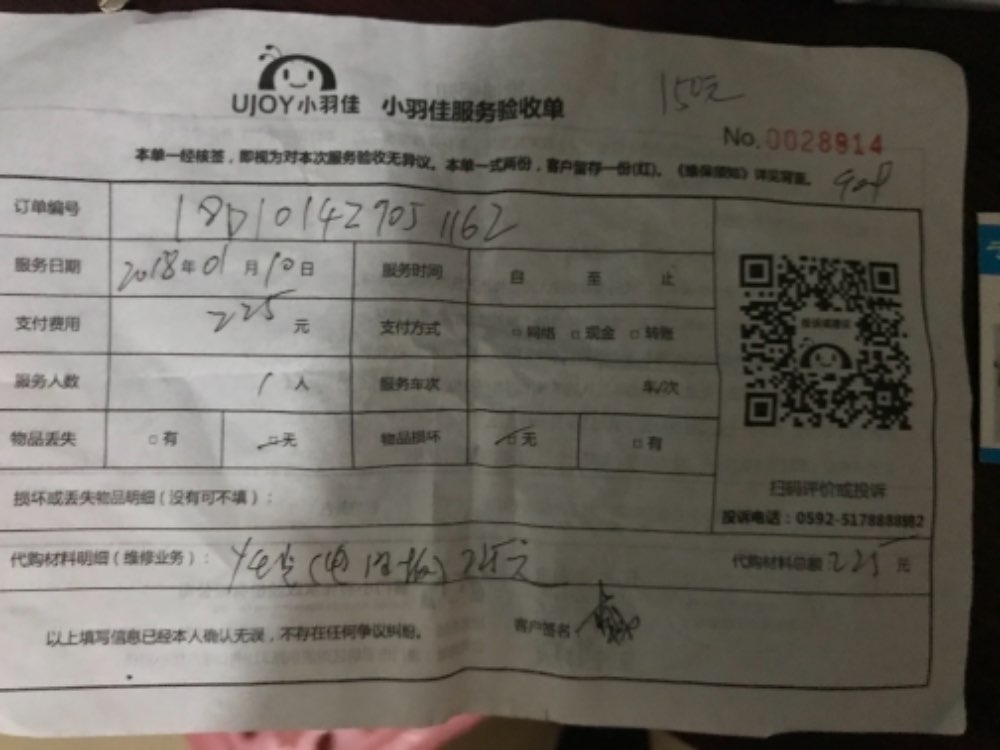 UJOY小羽佳 小羽佳服务验收单 150元
No.0028914
本单一经核签，即视为对本次服务验收无异议。本单一式两份，客户留存一份(红)。《维保须知》详见背面。
订单编号 18D101427051162
服务日期 2018年01月10日 服务时间 自 至 止
支付费用 225元 支付方式 □网络 □现金 □转账
服务人数 1人 服务车次 车/次
物品丢失 □有 □无 物品损坏 □无 □有
投诉或建议
扫码评价或投诉
损坏或丢失物品明细（没有可不填）：
投诉电话：0592-5178888转2
代购材料明细（维修业务）： 225元 代购材料总额：225元
以上填写信息已经本人确认无误，不存在任何争议纠纷。 客户签名：